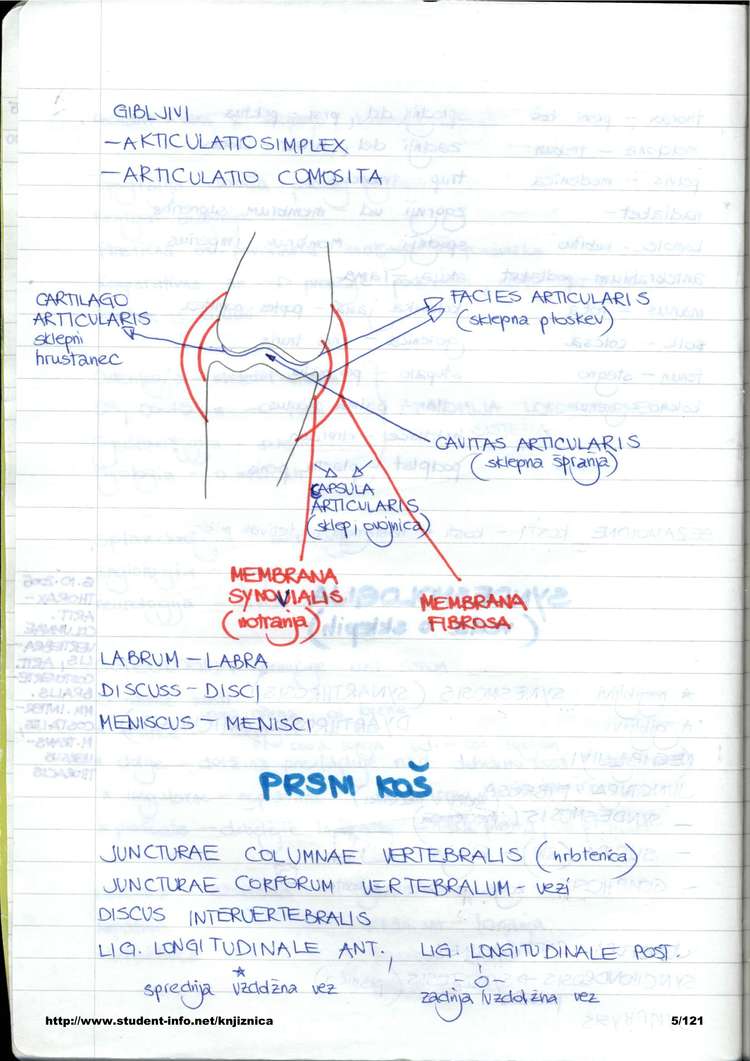 GIBLJIVI
- AKTICULATIO SIMPLEX
- ARTICULATIO COMOSITA
CARTILAGO
ARTICULARIS
sklepni
hrustanec
FACIES ARTICULARIS
(sklepna ploskev)
CAVITAS ARTICULARIS
(sklepna špranja)
CAPSULA
ARTICULARIS
(sklep, ovojnica)
MEMBRANA
SYNOVIALIS
(notranja)
MEMBRANA
FIBROSA
LABRUM - LABRA
DISCUSS - DISCI
MENISCUS - MENISCI
PRSM KOŠ
JUNCTURAE COLUMNAE VERTEBRALIS (hrbtenica)
JUNCTURAE CORPORUM VERTEBRALUM - vezi
DISCUS INTERVERTEBRALIS
LIG. LONGITUDINALE ANT., LIG. LONGITUDINALE POST.
sprednja vzdolžna vez zadnja vzdolžna vez
http://www.student-info.net/knjiznica 5/121